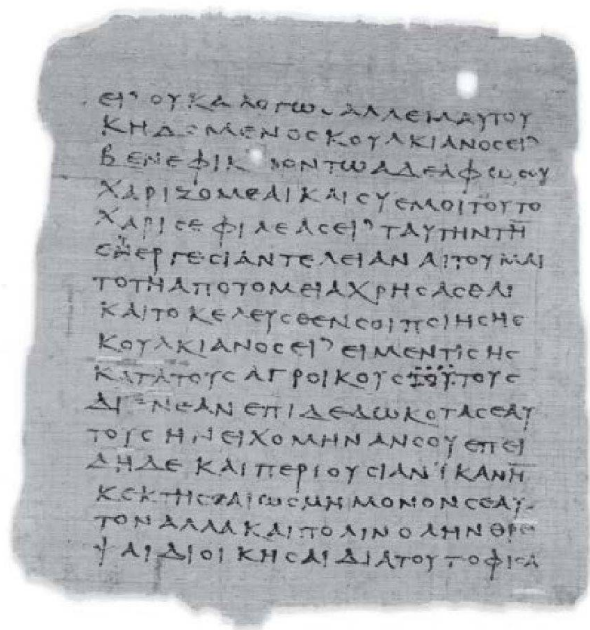 ΕΙ⸍ ΟΥΚ ΑΛΟΓΩϹ ΑΛΛ ΕΜΑΥΤΟΥ
ΚΗΔΟΜΕΝΟϹ ΚΟΥΛΚΙΑΝΟϹ ΕΙ⸍
ΒΕΝΕΦΙΚΙΟΝ ΤΩ ΑΔΕΛΦΩ ϹΟΥ
ΧΑΡΙΖΟΜΑΙ ΚΑΙ ϹΥ ΕΜΟΙ ΤΟΥΤΟ
ΧΑΡΙϹΕ ΦΙΛΕΑϹ ΕΙ⸍ ΤΑΥΤΗΝ ΤΗ̅
ΕΥΕΡΓΕϹΙΑΝ ΤΕΛΕΙΑΝ ΑΙΤΟΥΜΑΙ
ΤΟ ΤΗ ΑΠΟΤΟΜΕΙΑ ΧΡΗϹΑϹΘΑΙ
ΚΑΙ ΤΟ ΚΕΛΕΥϹΘΕΝ ϹΟΙ ΠΟΙΗϹΗϹ
ΚΟΥΛΚΙΑΝΟϹ ΕΙ⸍ ΕΙ ΜΕΝ ΤΙϹ ΗϹ
ΚΑΤΑ ΤΟΥϹ ΑΓΡΟΙΚΟΥϹ ΤΟΥΤΟΥϹ
ΔΙ ΕΝΕΑΝ ΕΠΙΔΕΔΩΚΟΤΑϹ ΕΑΥ
ΤΟΥϹ ΗΝΕΙΧΟΜΗΝ ΑΝ ϹΟΥ ΕΠΕΙ
ΔΗ ΔΕ ΚΑΙ ΠΕΡΙΟΥϹΙΑΝ ΪΚΑΝΗ̅
ΚΕΚΤΗϹΑΙ ΩϹ ΜΗ ΜΟΝΟΝ ϹΕΑΥ
ΤΟΝ ΑΛΛΑ ΚΑΙ ΠΟΛΙΝ ΟΛΗΝ ΘΡΕ
ΨΑΙ ΔΙΟΙΚΗϹΑΙ ΔΙΑ ΤΟΥΤΟ ΦΙϹΑ